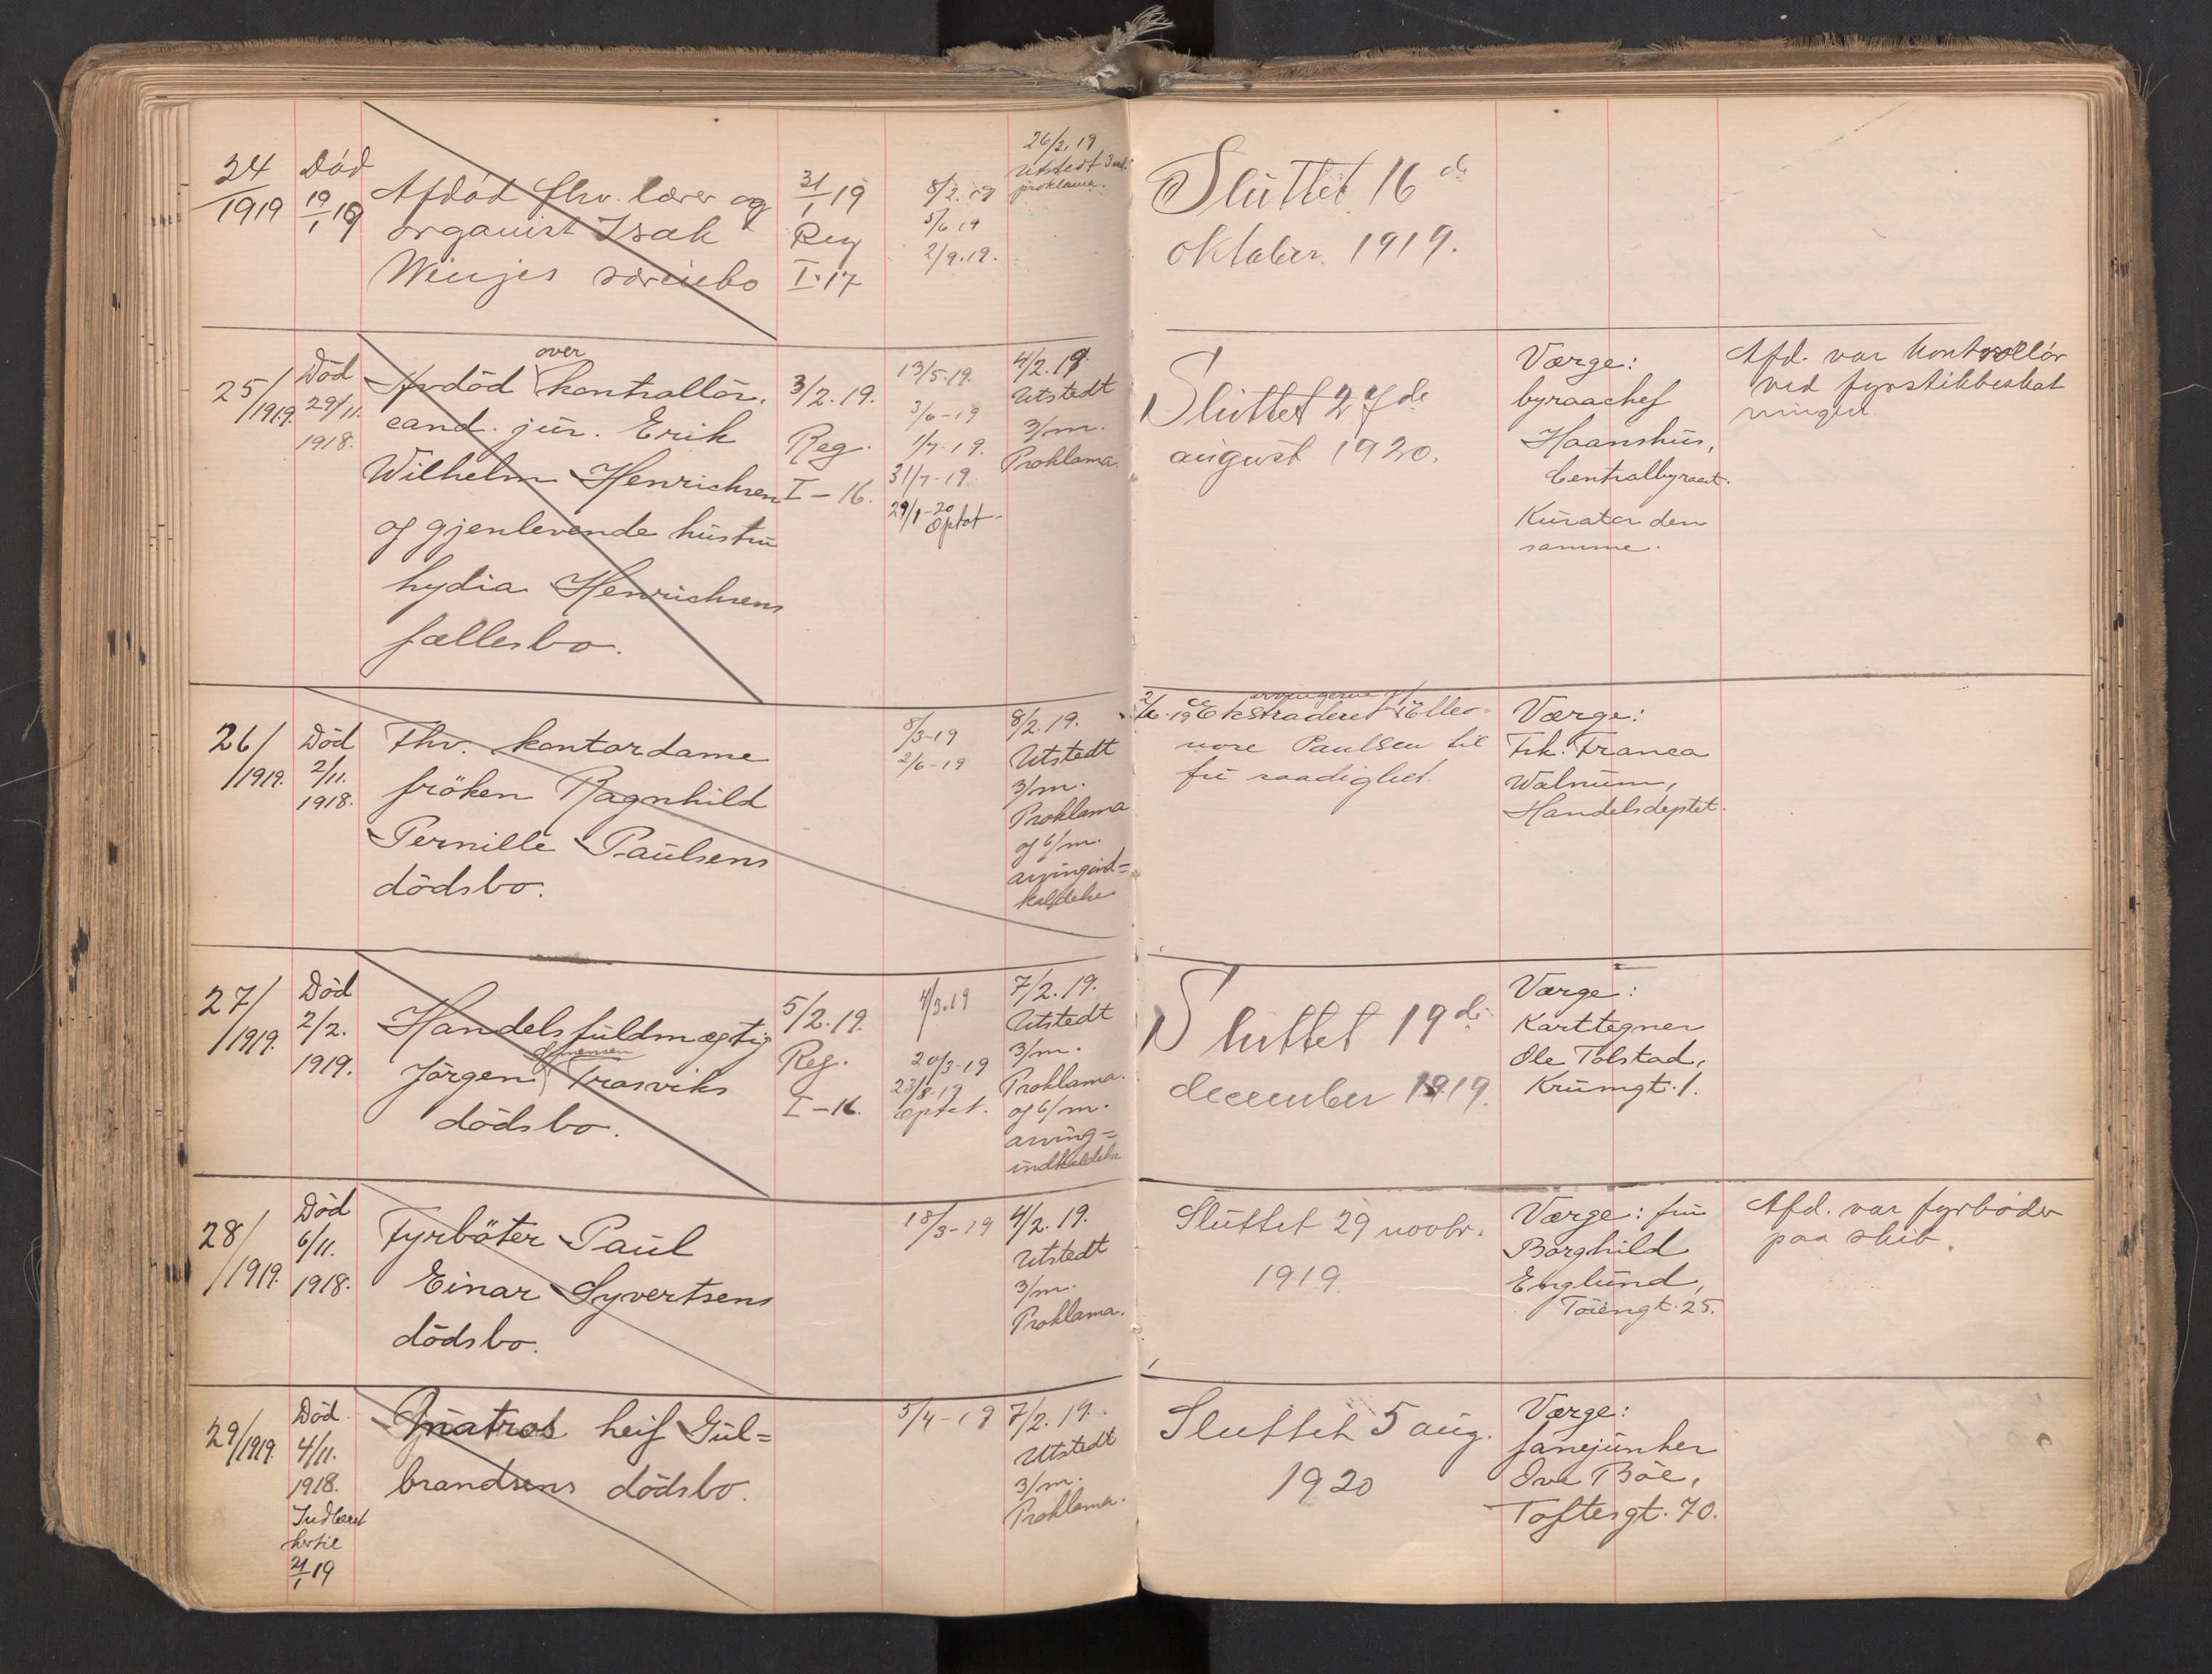 24/1919
Död
19/1 19
Afdød fhv. lærer og
organist Isak
Winjes særeiebo
31/1 19
Reg
I-17
8/2. 19
5/6 19
2/9.19.
26/2. 19
Utstedt 3 md.
proklama.
Sluttet 16de
oktober 1919.
25/1919.
Död
29/11.
1918.
Avdöd over kontrollör,
cand. jur. Erik
Wilhelm Henrichsen
og gjenlevende hustru
Lydia Henrichsens
fællesbo.
3/2. 19.
Reg.
I-16.
13/5.19.
3/6-19
1/7-19.
31/7-19.
29/1-20
Optat
4/2. 19.
Utstedt
3/m.
Proklama.
Sluttet 27de
august 1920.
Værge:
byraachef
Haanshus,
Centralbyraaet.
Kurator den
samme.
Afd. var kontrollör
ved fyrstikbeskat
ningen
26/1919.
Död
2/11.
1918.
Fhv. kontordame
fröken Ragnhild
Pernille Paulsens
dödsbo.
8/3-19
2/6-19
8/2. 19.
Utstedt
3/m.
Proklama
og 6/m.
arvingind=
kaldelse
2/6-19 Ekstraderet arvingerne Elleo-
nore Paulsen til
fri raadighed.
Værge:
Frk. Franca
Walnum,
Handelsdeptet.
27/1919.
Död
2/2.
1919.
Handelsfuldmægtig
Jörgen Sörensen Trasviks
dödsbo.
5/2. 19.
Reg.
I-16.
4/3.19
20/3-19
23/8.19
Optat.
7/2. 19.
Utstedt
3/m.
Proklama.
og 6/m.
arving=
indkaldelse
Sluttet 19de
december 1919.
Værge:
Karttegner
Ole Tolstad,
Krumgt. 1.
28/1919.
Död
6/11.
1918.
Fyrböter Paul
Einar Syvertsens
dödsbo.
18/3-19
4/2. 19.
Utstedt
3/m.
Proklama.
Sluttet 29 novbr.
1919.
Værge: fru
Borghild
Englund,
Töiengt. 25.
Afd. var fyrbøder
paa skib.
29/1919.
Död
4/11.
1918.
Indberet
hertil
21/1 19
Matros Leif Gul=
brandsens dödsbo.
5/4-19
7/2. 19.
Utstedt
3/m.
Proklama.
Sluttet 5 aug.
1920
Værge:
fanejunker
Ove Böe,
Toftesgt. 70.